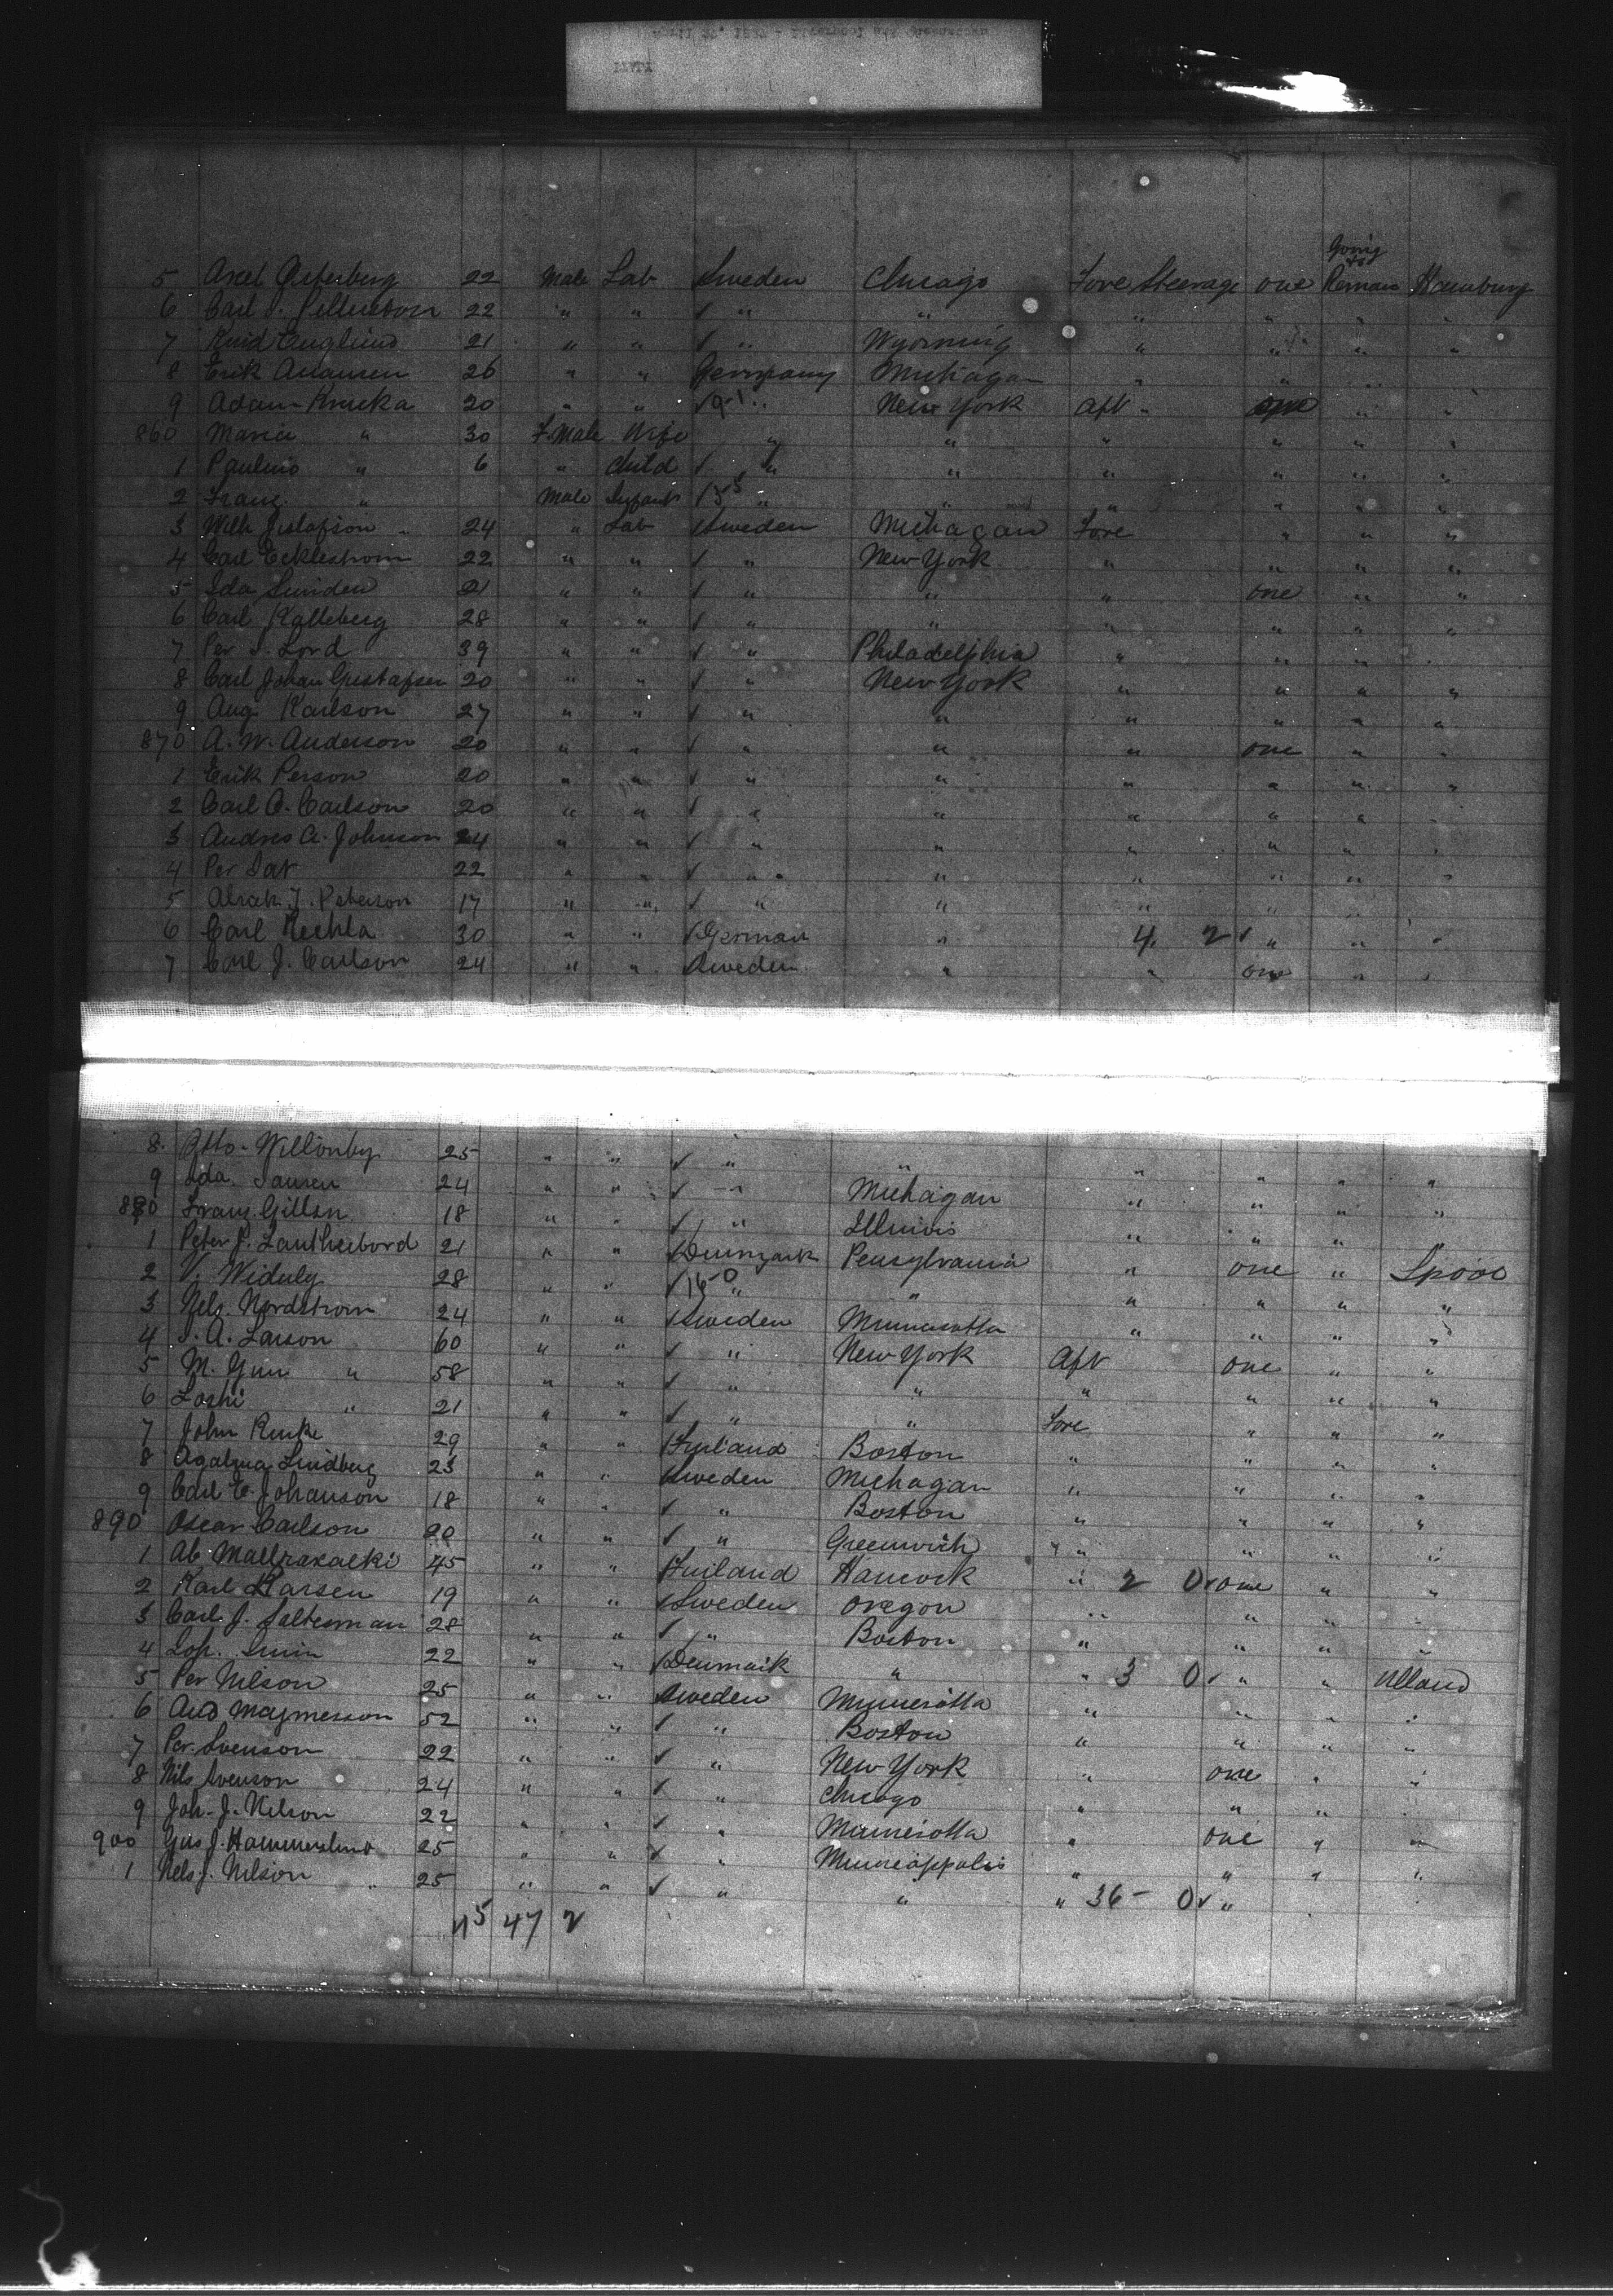 5 Axel Osterberg 22 Male Lab Sweden Chicago Fore Steerage one Going to Remain Hamburg
6 Carl 22 " " " " " " " "
7 21 " " " Wyoming " " " "
8 Erik 26 " " Germany Michagan " " " "
9 Adam 20 " " " New York Aft " one " "
860 Maria " 30 F.Male Wife " " " " " "
1 Paulino " 6 " Child " " " " " "
2 Franz " Male Infant " " " " " "
3 Wilh Gustafson 24 " Lab Sweden Michagan Fore " " "
4 Carl Ecklestrom 22 " " " New York " " " "
5 Ida Linden 21 " " " " " one " "
6 Carl Kalleberg 28 " " " " " " " "
7 Per S. Lord 39 " " " Philadelphia " " " "
8 Carl Johan Gustafsen 20 " " " New York " " " "
9 Aug Karlson 27 " " " " " " " "
870 A. W. Anderson 20 " " " " " one " "
1 Erik Person 20 " " " " " " " "
2 Carl A. Carlson 20 " " " " " " " "
3 Andres A. Johnson 24 " " " " " " " "
4 Per 22 " " " " " " " "
5 J. Peterson 17 " " " " " " " "
6 Carl 30 " " German " 4 2 " " "
7 Carl J. Carlson 24 " " Sweden " " one " "
8 Otto Willonby 25 " " " " " " " "
9 Ida 24 " " " Michagan " " " "
880 Franz Gillsn 18 " " " Illinois " " " "
1 Peter J. 21 " " Denmark Pensylvania " one " Lpool
2 V. Widuly 28 " " " " " " " "
3 Nels Nordstrom 24 " " Sweden Minnesotta " " " "
4 A. Larson 60 " " " New York Aft one " "
5 M. " 58 " " " " " " " "
6 " 21 " " " " Fore " " "
7 John 29 " " Finland Boston " " " "
8 Lindberg 23 " " Sweden Michagan " " " "
9 Carl E. Johanson 18 " " " Boston " " " "
890 Oscar Carlson 20 " " " Greenwich " " " "
1 Ab 45 " " Finland Hancock " 2 0 one " "
2 Karl Karsen 19 " " Sweden Oregon " " " "
3 Carl J. Saltesman 28 " " " Boston " " " "
4 22 " " Denmark " " 3 0 " " Ulland
5 Per Nelson 25 " " Sweden Minnesotta " " " "
6 And Magnesson 52 " " " Boston " " " "
7 Per Svenson 22 " " " New York " one " "
8 Nils Svenson 24 " " " Chicago " " " "
9 Joh. J. Nelson 22 " " " Minnesotta " one " "
900 Gus J. 25 " " " Minneappolis " " " "
1 Nels J. Nelson 25 " " " " " 36 - 0 "
45 47 2